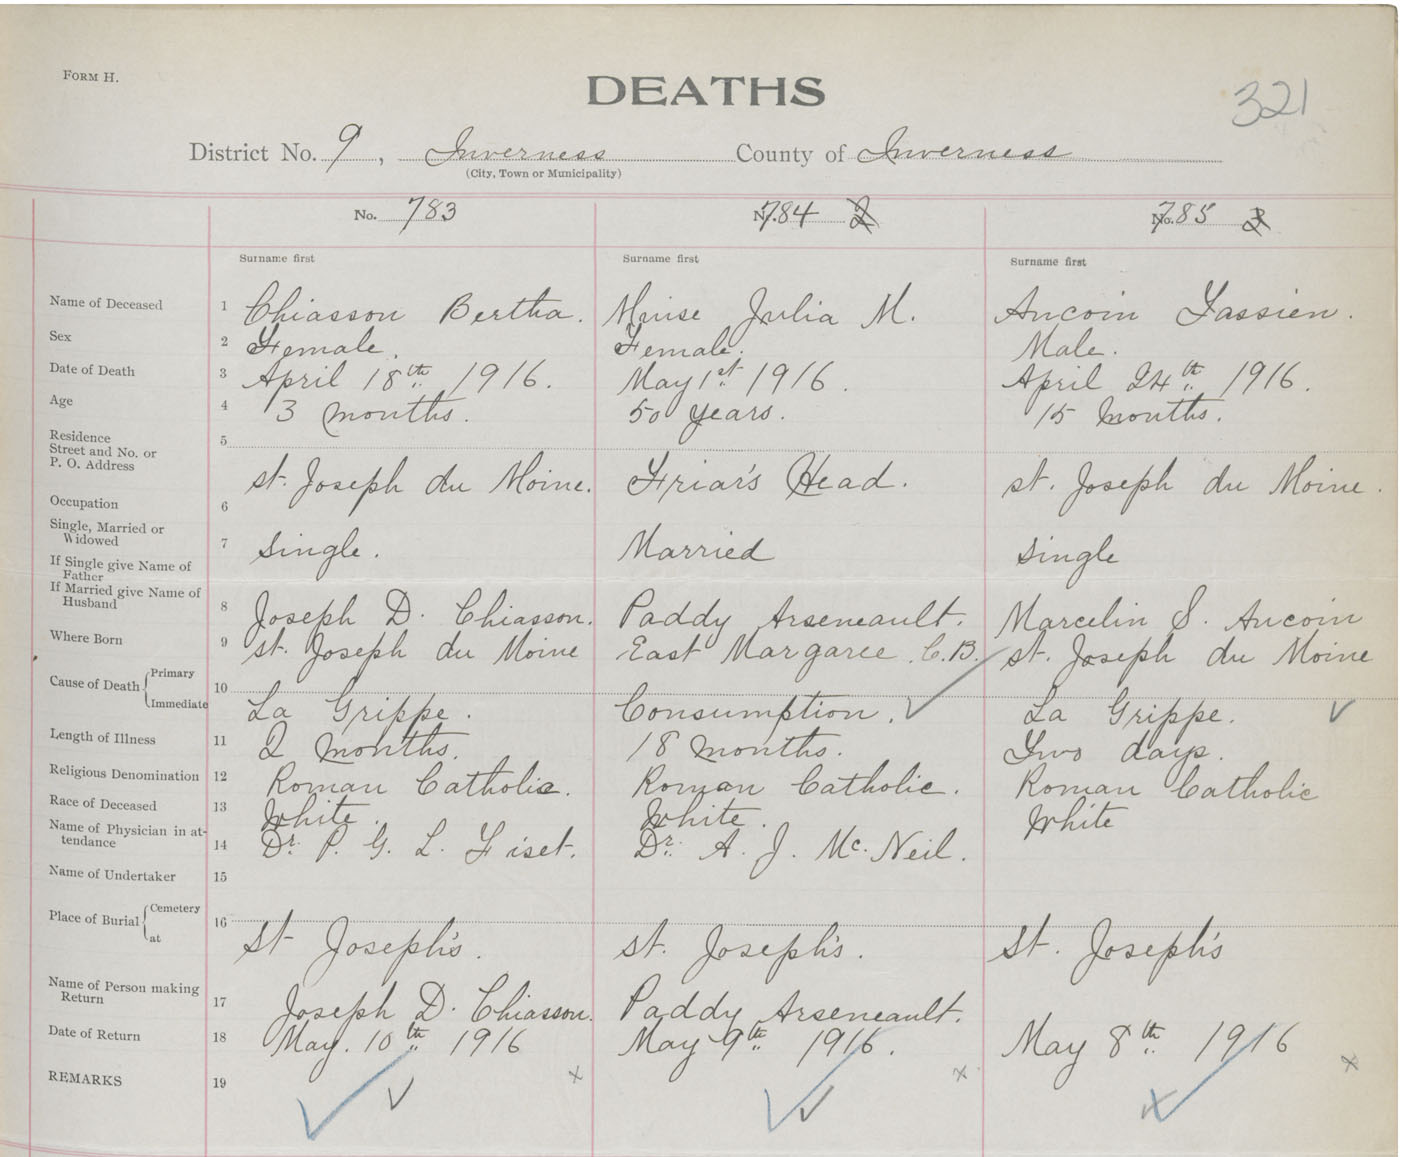 FORM H.
DEATHS
321
District No. 9, Inverness County of Inverness
(City, Town or Municipality)
No. 783
No. 784 2
No. 785 3
Surname first
Surname first
Surname first
Name of Deceased 1 Chiasson Bertha. Muise Julia M. Aucoin Tassien.
Sex 2 Female. Female. Male.
Date of Death 3 April 18th 1916. May 1st 1916. April 24th 1916.
Age 4 3 months. 50 years. 15 months.
Residence
Street and No. or
P. O. Address 5 st. Joseph du Moine. Friar's Head. st. Joseph du Moine.
Occupation 6
Single, Married or
Widowed 7 single. Married single
If Single give Name of
Father
If Married give Name of
Husband 8 Joseph D. Chiasson. Paddy Arseneault. Marcelin S. Aucoin
Where Born 9 st. Joseph du Moine East Margaree C.B. st. Joseph du Moine
Cause of Death Primary
Immediate 10 La Grippe. Consumption. La Grippe.
Length of Illness 11 2 months. 18 months. Two days.
Religious Denomination 12 Roman Catholic. Roman Catholic. Roman Catholic
Race of Deceased 13 White. White. White
Name of Physician in at-
tendance 14 Dr. P. G. L. Fiset. Dr. A. J. Mc. Neil.
Name of Undertaker 15
Place of Burial Cemetery
at 16 St Joseph's. st. Joseph's. St. Joseph's
Name of Person making
Return 17 Joseph D. Chiasson. Paddy Arseneault.
Date of Return 18 May. 10th 1916 May 9th 1916. May 8th 1916
REMARKS 19 x x x